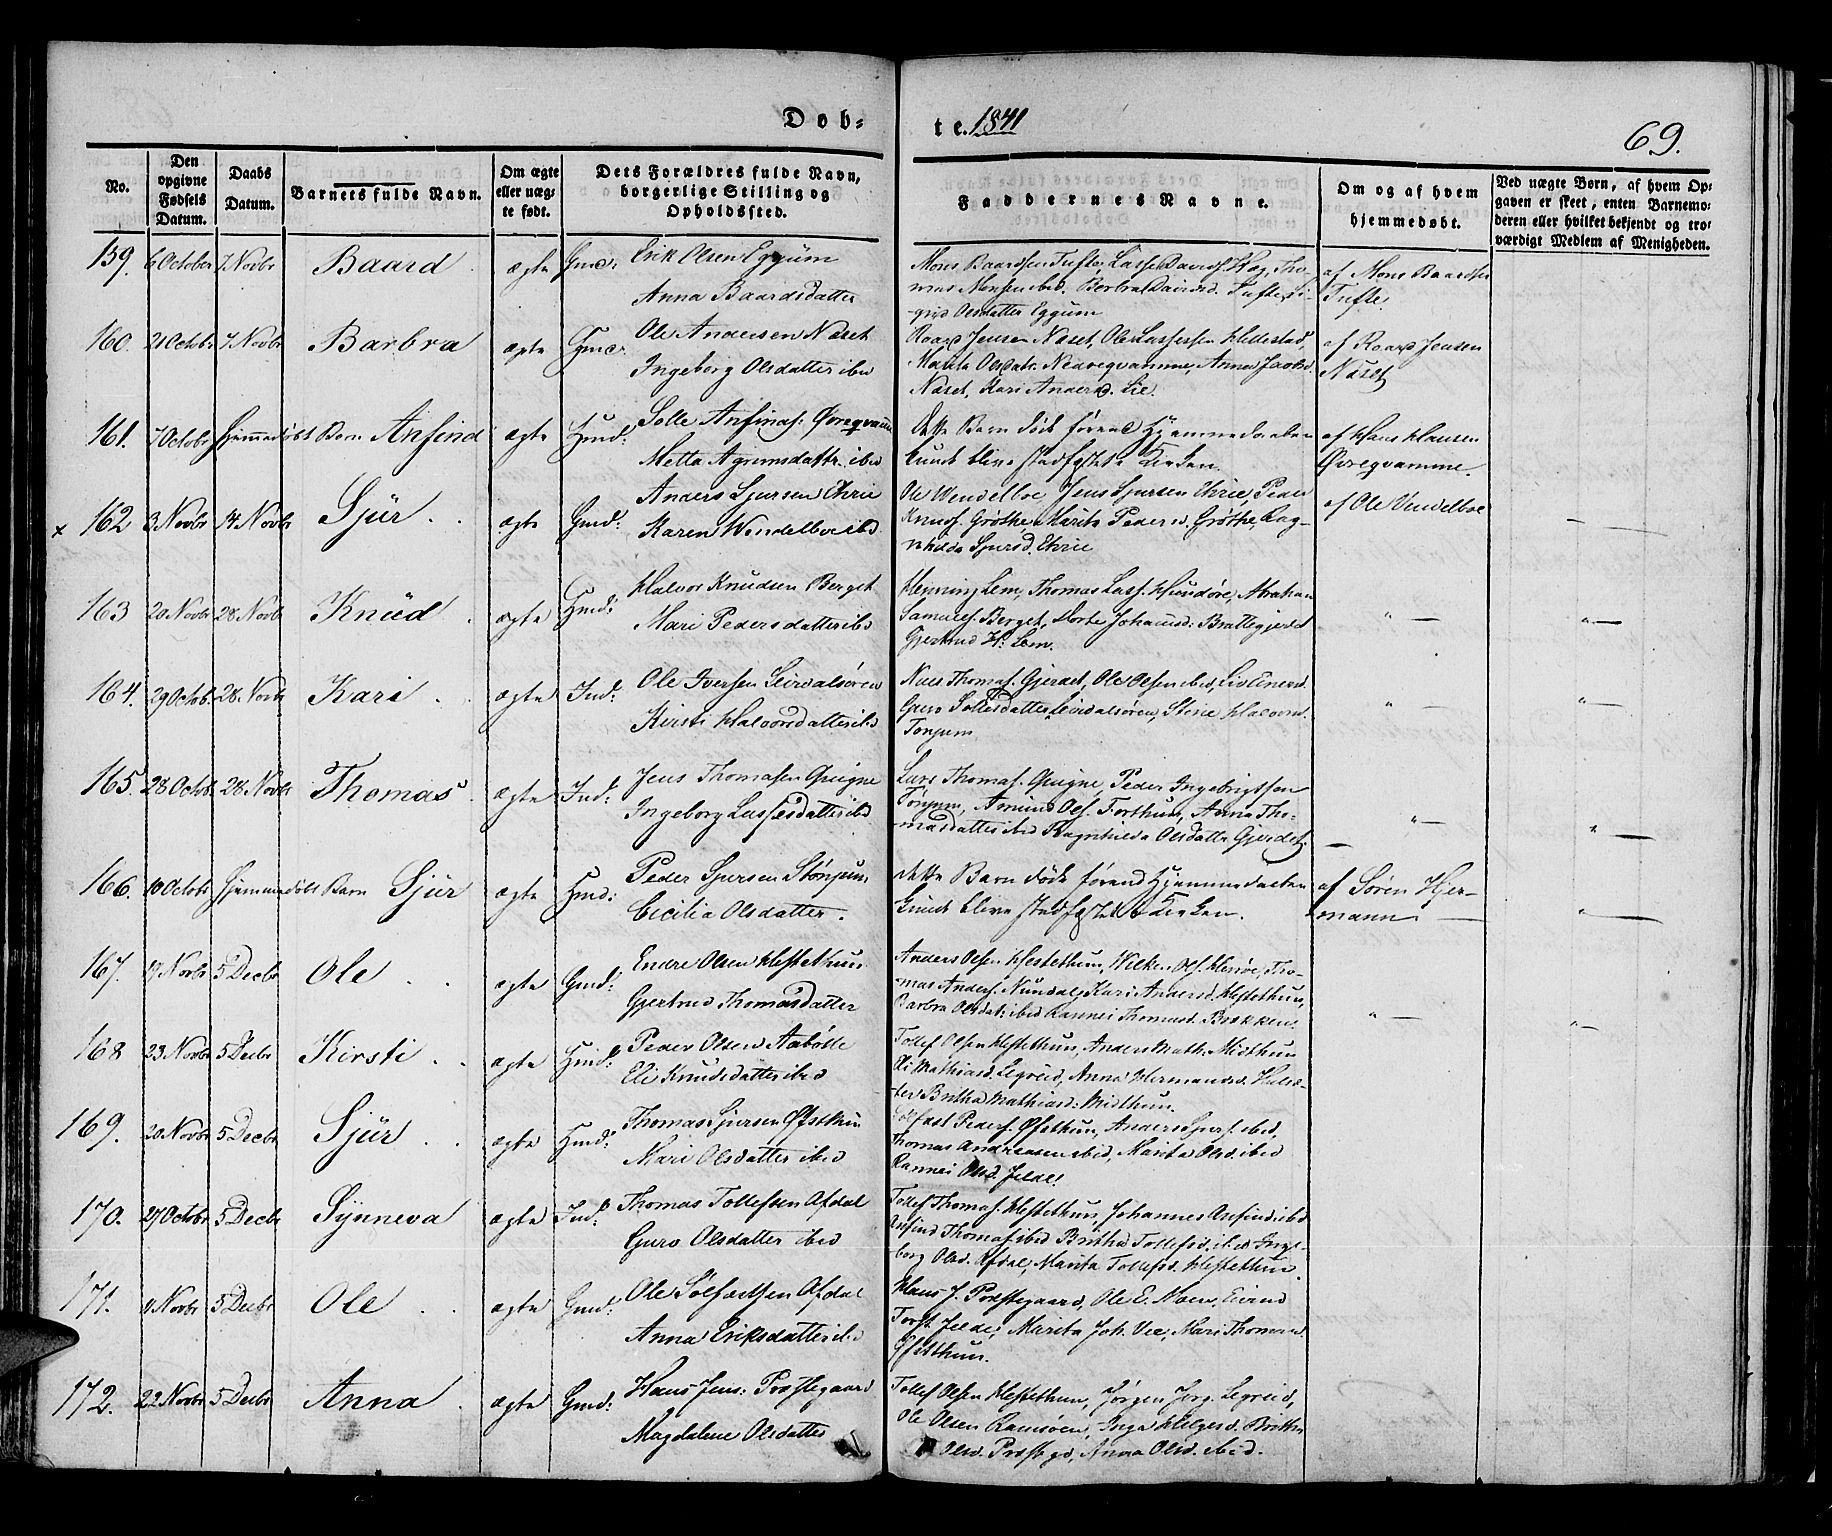 Døb- te. 1841
69.
No.
Den opgivne Fødsels Datum.
Daabs Datum.
Barnets fulde Navn.
Om ægte eller uægte født.
Dets Forældres fulde Navn, borgerlige Stilling og Opholdssted.
Faddernes Navne.
Om og af hvem hjemmedøbt.
Ved uægte Børn, af hvem Opgaven er skeet, enten Barnemoderen eller hvilket bekjendt og troværdigt Medlem af Menigheden.
159. 6 October 7 Novbr Baard ægte Gmd: Erik Olsen Eggum
Anna Baardsdatter
Mons Baardsen Tufte, Lasse Davids. Hag, Thomas Monsen ibid. Berbra Davidsd. Tufte, Sigrid Olsdatter Eggum
af Mons Baardsen Tufte.
160. 21 Octobr 7 Novbr Barbra ægte Hmd: Ole Andersen Næset
Ingeborg Olsdatter ibid
Roard Jensen Næset, Ole Lassesen Hillestad,
Marita Olsdatr. Nedreqvamme, Anna Jacobsd.
Næset, Kari Andersd. Lie.
af Roard Jensen Næset
161. 7 Octobr Hjemmedøbt Barn Ansind ægte Hmd: Tolle Anfinds. Øvreqvamme
Metta Agrimsdattr. ibid
Dette Barn døde førend Hjemmedaaben
kunde blive stadfæstet i Kirken.
af Hans Hansen
Øvreqvamme.
x 162 3 Novbr 14 Novbr Sjur ægte Gmd: Anders Sjursen Ehrie
Karen Wendelboe ibid
Ole Wendelboe, Jens Sjursen Ehrie, Peder
Knuds. Grøthe, Marita Pedersd. Grøthe, Ragnhilde Sjursd. Ehrie
af Ole Vendelboe
163 20 Novbr 28 Novbr Knud ægte Hmd: Halvor Knudsen Berget
Mari Pedersdatter ibid
Henning Lem, Thomas Lass. Hundøre, Abraham
Samuels. Berget, Dorte Johannsd: Brattegjerdet
Gjertrud H: Lem.
164. 29 Octob. 28. Novbr Kari ægte Ind: Ole Iversen Leirdalsøren
Kirsti Halvorsdatter ibid
Niels Thomas. Gjerdet, Ole Olsen ibid, Liv Einersd.
Guro Tollesdatter Leirdalsøren, Stine Halvorsd.
Tonjum
165. 28 Octob. 28 Novbr Thomas ægte Ind: Jens Thomasen Qvigne
Ingeborg Lassesdatter ibid
Lars Thomas. Qvigne, Peder Ingebrigtsen
Tønjum, Amund Ols. Forthun, Anna Thomasdatter ibid Ragnhilda Olsdattr Gjerdet.
166. 10 Octobr Hjemmedøbt Barn Sjur ægte Hmd: Peder Sjursen Stønjum
Cecilia Olsdatter.
Dette Barn døde førend Hjemmedaaben
kunde blive stadfæstet i Kirken.
af Søren Hjermann
167. 17 Novbr 5 Decbr Ole ægte Gmd: Endre Olsen Hestethun
Gjertrud Thomasdatter
Anders Olsen Hestethun, Wilken Ols. Henøe, Thomas Anders. Nundal, Kari Andersd. Hestethun,
Barbra Olsdat: ibid Rannei Thomasd. Brækken.
168 23 Novbr 5 Decbr Kirsti ægte Hmd: Peder Olsen Aabølle
Eli Knudsdatter ibid
Tollef Olsen Hestethun, Anders Math. Midthun
Eli Mathiasd. Legreid, Anna Hermandsd. Hulsæter Britha Mathiasd: Midthun.
169. 20 Novbr 5 Decbr Sjur ægte Hmd: Thomas Sjursen Øfsthun
Mari Olsdatter ibid
Solfæst Peders. Øfsthun, Anders Sjurs. ibid,
Thomas Andreassen ibid, Marita Olsd. ibid
Rannei Olsd. Jelde.
170. 27 Octobr 5 Decbr Synneva ægte Ind: Thomas Tollefsen Afdal
Guro Olsdatter ibid
Tollef Thomas. Hestethun, Johannes Ansind. ibid
Ansind Thomas. ibid Britha Tollefsd. ibid Ingeborg Olsd. Afdal, Marita Tollefsd. Hestethun.
171. 11 Novbr 5 Decbr Ole ægte Gmd: Ole Solfæstsen Afdal
Anna Eriksdatter ibid
Hans J. Præstegaard, Ole E. Moen, Eivind
Torst. Jelde, Marita Joh. Vee, Mari Thomasd.
Øfsthun.
172. 22 Novbr 5 Decbr Anna ægte Gmd: Hans Jens: Præstegaard
Magdalene Olsdatter
Tollef Olsen Hestethun, Jørgen Jørg. Legreid,
Ole Olsen Ramsøen, Inga Helgesd. Britha
Olsd. Præstegd, Anna Olsd. ibid.